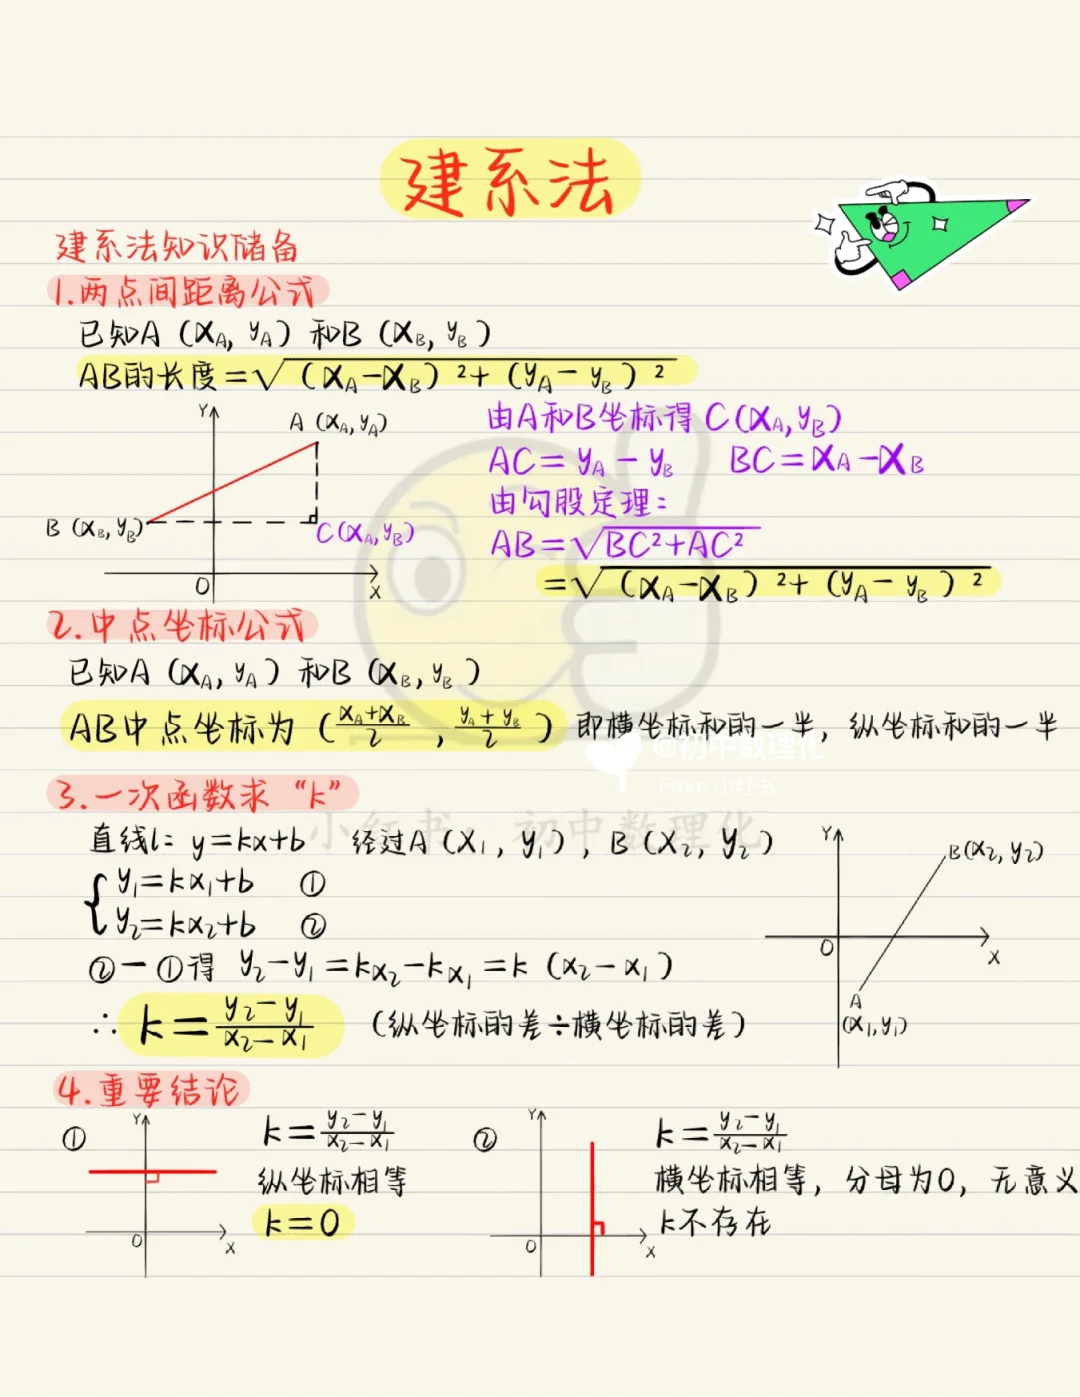 建系法
建系法知识储备
1.两点间距离公式
已知A（xA, yA）和B（xB, yB）
AB的长度=√（xA-xB）²+（yA-yB）²
Y
A（xA, yA）
B（xB, yB）
C（xA, yB）
O
X
由A和B坐标得C(xA, yB)
AC=yA-yB BC=xA-xB
由勾股定理：
AB=√BC²+AC²
=√（xA-xB）²+（yA-yB）²
2.中点坐标公式
已知A（xA, yA）和B（xB, yB）
AB中点坐标为（(xA+xB)/2 , (yA+yB)/2）即横坐标和的一半，纵坐标和的一半
@初中数理化
From 小红书
3.一次函数求“k”
小红书：初中数理化
直线l：y=kx+b 经过A（x₁, y₁）, B（x₂, y₂）
y₁=kx₁+b ①
y₂=kx₂+b ②
②-①得 y₂-y₁=kx₂-kx₁=k（x₂-x₁）
∴ k=(y₂-y₁)/(x₂-x₁)（纵坐标的差÷横坐标的差）
Y
B(x₂, y₂)
O
X
A
(x₁, y₁)
4.重要结论
①
Y
O
X
k=(y₂-y₁)/(x₂-x₁)
纵坐标相等
k=0
②
Y
O
X
k=(y₂-y₁)/(x₂-x₁)
横坐标相等，分母为0，无意义
k不存在